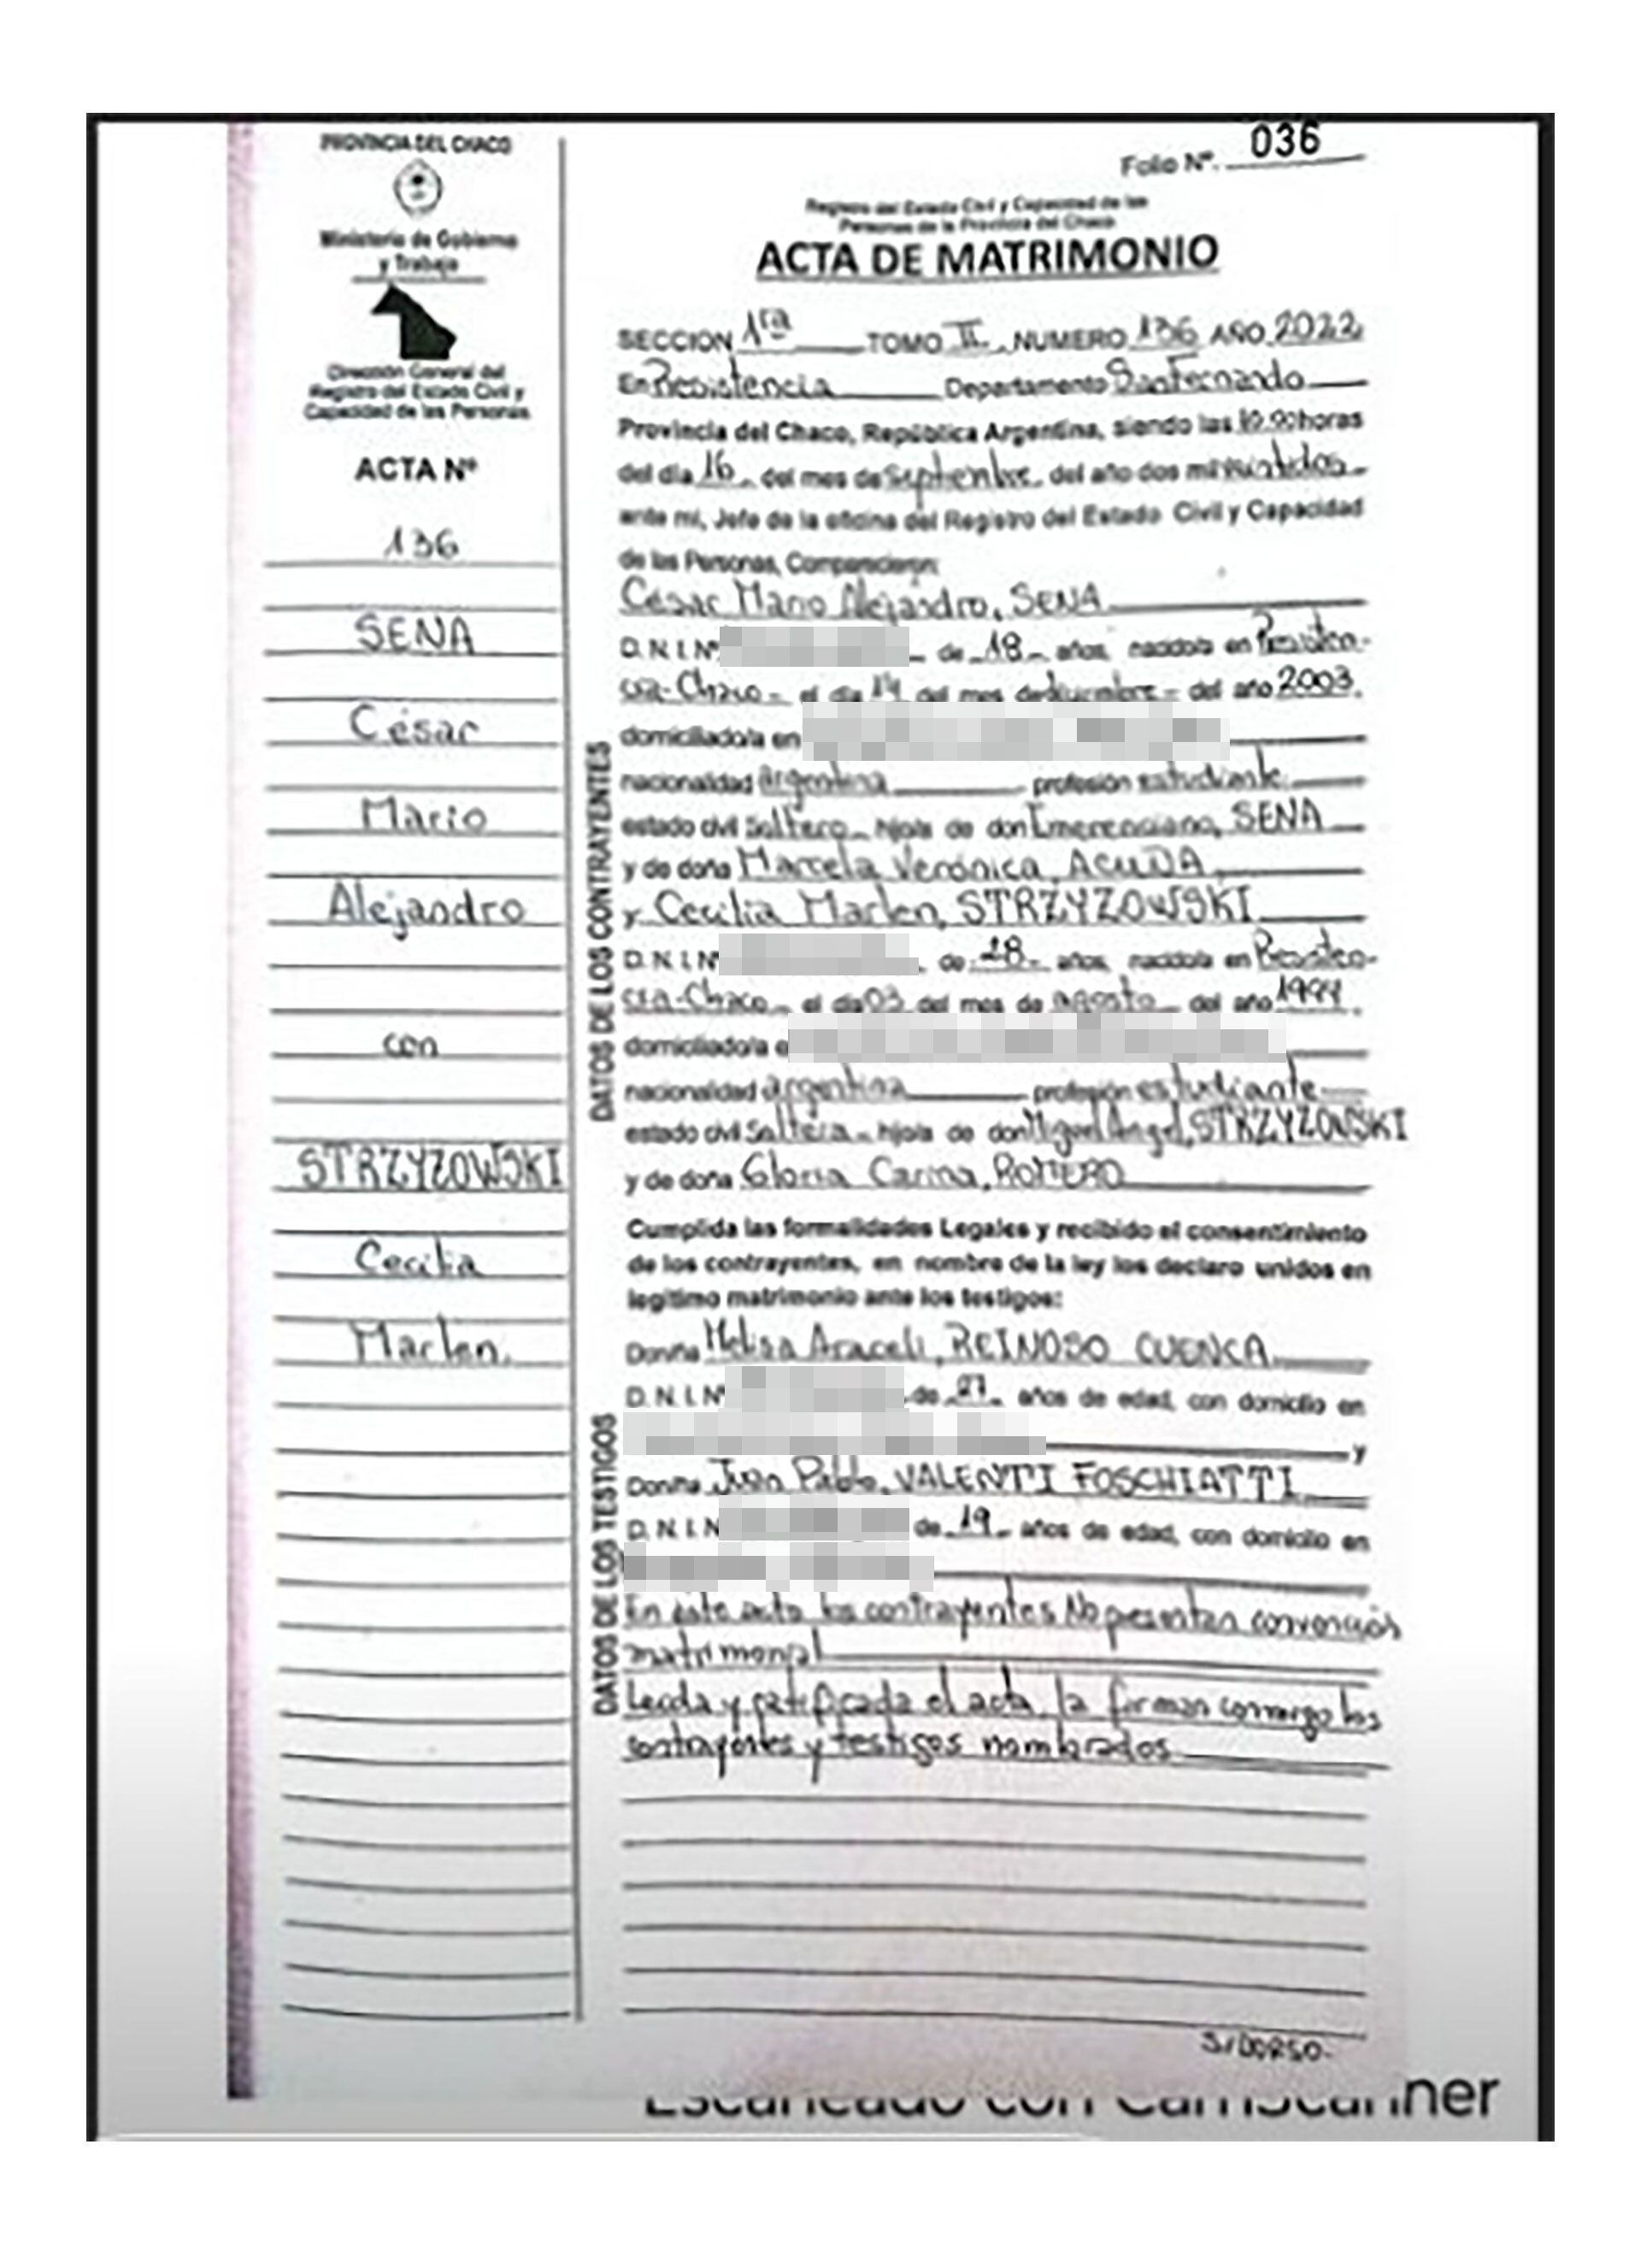 PROVINCIA DEL CHACO
Ministerio de Gobierno
y Trabajo
Dirección General del
Registro del Estado Civil y
Capacidad de las Personas
ACTA Nº
136
SENA
César
Mario
Alejandro
con
STRZYZOWSKI
Cecilia
Marlen.
Folio Nº. 036
Registro del Estado Civil y Capacidad de las
Personas de la Provincia del Chaco
ACTA DE MATRIMONIO
SECCION 1ra TOMO II NUMERO 136 AÑO 2022
En Resistencia Departamento San Fernando
Provincia del Chaco, República Argentina, siendo las horas
del día 16 del mes de Septiembre del año dos mil veintidos
ante mi, Jefe de la oficina del Registro del Estado Civil y Capacidad
de las Personas, Comparecieron:
César Mario Alejandro, SENA
D. N. I. Nº de 18 años, nacido/a en Resisten-
cia-Chaco el día 14 del mes de diciembre del año 2003.
domiciliado/a en
nacionalidad argentina profesión estudiante
estado civil Soltero hijo/a de don Emerenciano, SENA
y de doña Marcela Verónica, ACUÑA
y Cecilia Marlen, STRZYZOWSKI
D. N. I. Nº de 28 años, nacido/a en Resisten-
cia-Chaco el día 03 del mes de agosto del año 1994.
domiciliado/a e
nacionalidad argentina profesión estudiante
estado civil Soltera hijo/a de don Miguel Angel, STRZYZOWSKI
y de doña Gloria Carina, ROMERO
Cumplida las formalidades Legales y recibido el consentimiento
de los contrayentes, en nombre de la ley los declaro unidos en
legítimo matrimonio ante los testigos:
Don/ña Melisa Araceli, REINOSO CUENCA
D. N. I. Nº de 27 años de edad, con domicilio en
y
Don/ña Juan Pablo, VALENTI FOSCHIATTI
D. N. I. N de 19 años de edad, con domicilio en
En este acto los contrayentes No presentan convención
matrimonial
Leida y ratificada el acta, la firman conmigo los
contrayentes y testigos nombrados
S/DORSO-
DATOS DE LOS CONTRAYENTES
DATOS DE LOS TESTIGOS
Escaneado con CamScanner